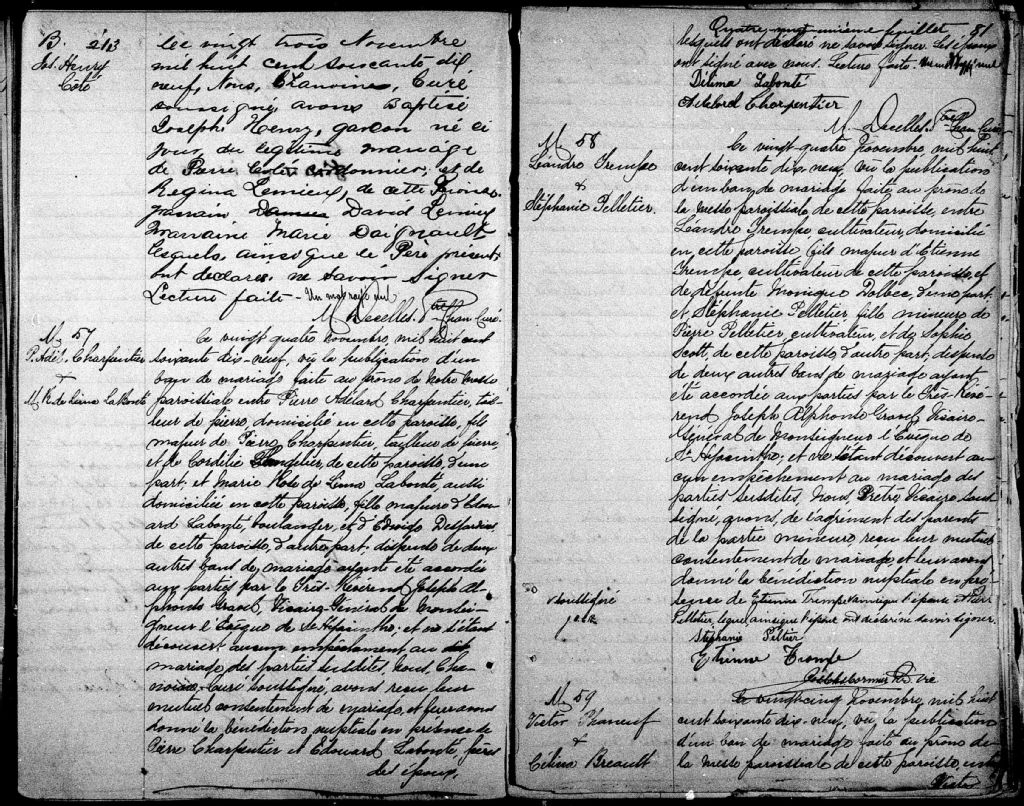 B. 213
Jos. Henry
Coté
Le vingt trois Novembre
mil huit cent soixante dix
neuf, Nous, Chanoine, Curé
soussigné, avons Baptisé
Joseph Henry, garçon né ce
jour, du légitime mariage
de Pierre Coté, cordonnier, et de
Regina Lemieux, de cette Paroisse
parrain David Lemieux
Marraine Marie Daignault
lesquels, ainsi que le Père présent
ont déclaré ne savoir signer
Lecture faite - Un mot rayé nul
M. Decelles. Ptre Chan. Curé
M 57
P. Adél. Charpentier
+
M. R. de Lima LaBonté
Ce vingt quatre novembre, mil huit cent
soixante dix-neuf, vû la publication d'un
ban de mariage faite au prône de notre messe
paroissiale entre Pierre Adélard Charpentier, tail-
leur de pierre, domicilié en cette paroisse, fils
majeur de Pierre Charpentier, tailleur de pierre,
et de Cordélie de cette paroisse, d'une
part, et Marie Rose de Lima Labonté, aussi
domiciliée en cette paroisse, fille majeure d'Edou-
ard Labonté, boulanger, et d'Edwidge Desjardins
de cette paroisse, d'autre part, dispense de deux
autres bans de mariage ayant été accordée
aux parties par le Très-Révérend Joseph Al-
phonse Gravel, Vicaire-Général de Monsei-
gneur l'Evêque de St Hyacinthe; et ne s'étant
découvert aucun empêchement au
mariage des parties susdites, nous, Cha-
noine-Curé soussigné, avons reçu leur
mutuel consentement de mariage, et leur avons
donné la bénédiction nuptiale en présence de
Pierre Charpentier et Edouard Labonté, pères
des époux,
Quatre vingt unième feuillet 81
lesquels ont déclaré ne savoir signer. Les époux
ont signé avec nous. Lecture faite. Un mot rayé nul
Délima Labonté
Adelard Charpentier
M. Decelles. Ptre Chan. Curé
M 58
Léandre Trempe
&
Stéphanie Pelletier.
Ce vingt quatre Novembre mil huit
cent soixante dix-neuf, vû la publication
d'un ban de mariage faite au prône de
la messe paroissiale de cette paroisse, entre
Léandre Trempe cultivateur, domicilié
en cette paroisse, fils majeur d'Etienne
Trempe cultivateur de cette paroisse, et
de défunte Monique Dolbec, d'une part,
et Stéphanie Pelletier fille mineure de
Pierre Pelletier, cultivateur, et de Sophie
Scott, de cette paroisse, d'autre part, dispense
de deux autres bans de mariage ayant
été accordée aux parties par le Très-Révé-
rend Joseph Alphonse Gravel, Vicaire-
Général de Monseigneur l'Evêque de
St Hyacinthe; et ne s'étant découvert au-
cun empêchement au mariage des
parties susdites, nous, Prêtre Vicaire sous-
signé, avons, de l'agrément des parents
de la partie mineure, reçu leur mutuel
consentement de mariage, et leur avons
donné la bénédiction nuptiale en pré-
sence de Etienne Trempe
Pelletier, lequel ainsi que l'époux ont déclaré ne savoir signer.
Stéphanie Peltier
Etienne Trempe
M 59
Victor Phaneuf
&
Célina Breault
Le vingt-cinq novembre, mil huit
cent soixante dix-neuf, vû la publication
d'un ban de mariage faite au prône de
la messe paroissiale de cette paroisse, entre
Victor